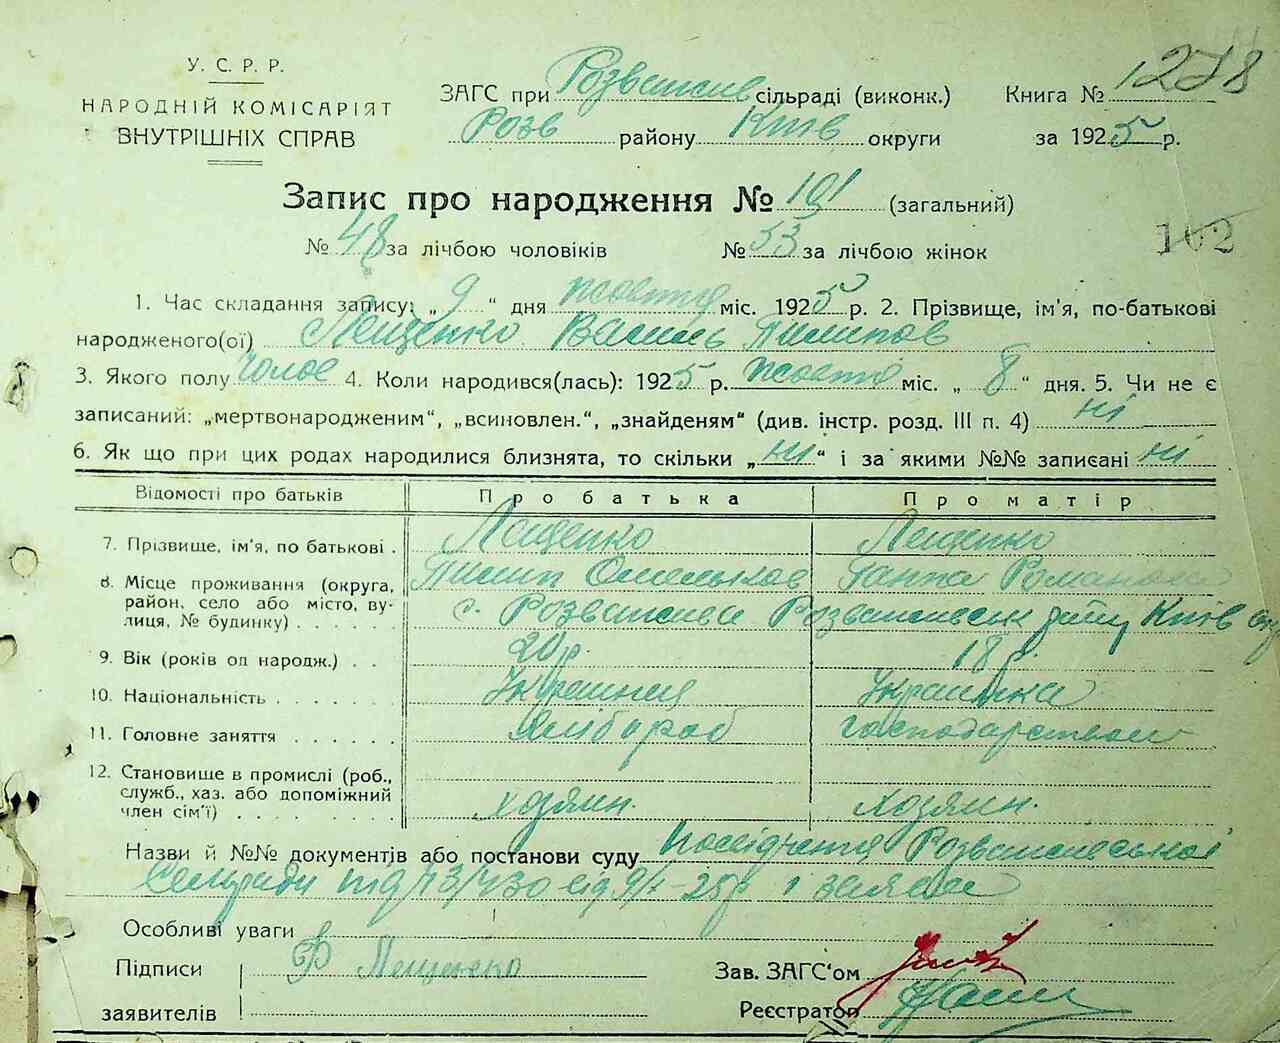 У. С. Р. Р.
НАРОДНІЙ КОМІСАРІЯТ
ВНУТРІШНІХ СПРАВ
ЗАГС при Розважев сільраді (виконк.) Книга № 1278
Розв району Київ округи за 1925 р.
Запис про народження № 101 (загальний)
№ 48 за лічбою чоловіків № 53 за лічбою жінок
102
1. Час складання запису: „ 9 “ дня жовтня міс. 1925 р. 2. Прізвище, ім'я, по-батькові
народженого(ої) Лещенко Василь Пилипов
3. Якого полу чолов 4. Коли народився(лась): 1925 р. жовтня міс. „ 8 “ дня. 5. Чи не є
записаний: „мертвонародженим“, „всиновлен.“, „знайденям“ (див. інстр. розд. III п. 4) ні
6. Як що при цих родах народилися близнята, то скільки „ ні “ і за якими №№ записані ні
Відомості про батьків Про батька Про матір
7. Прізвище, ім'я, по батькові . Лещенко Лещенко
Пилип Омельков Ганна Романовна
8. Місце проживання (округа,
район, село або місто, ву-
лиця, № будинку) . . . . . с. Розважев Розважевськ району Київ окр
9. Вік (років од народж.) . . 20 р. 18 р.
10. Національність . . . . . . . Українця Українка
11. Головне заняття . . . . . . Хлібороб господарством
12. Становище в промислі (роб.,
служб., хаз. або допоміжний
член сім'ї) . . . . . . . . . хозяин. хозяин.
Назви й №№ документів або постанови суду посвідчення Розважевської
Сільради під 13/430 від 9/X-25 р і заява
Особливі уваги
Підписи Ф Лещенко Зав. ЗАГС'ом
заявителів Реєстратор